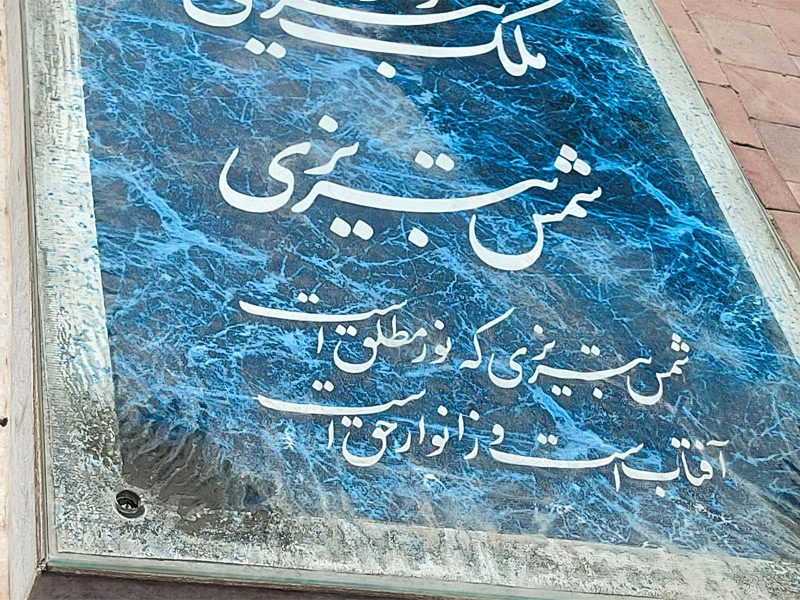 ملک
شمس تبریزی
شمس تبریزی که نور مطلق است
آفتاب است و ز انوار حق است